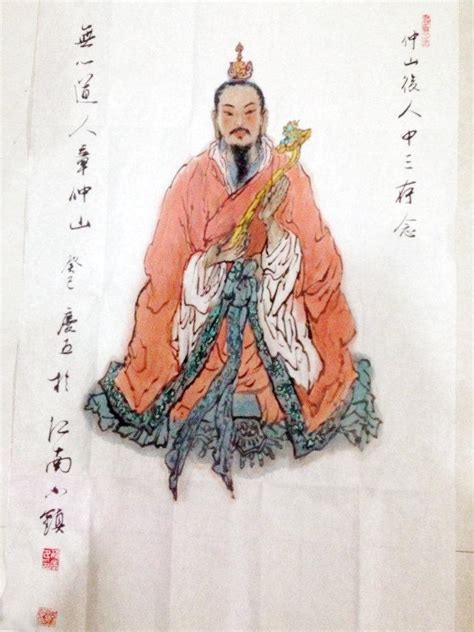 仲山後人中三存念
無心道人章仲山
癸巳 慶五於江南小鎮